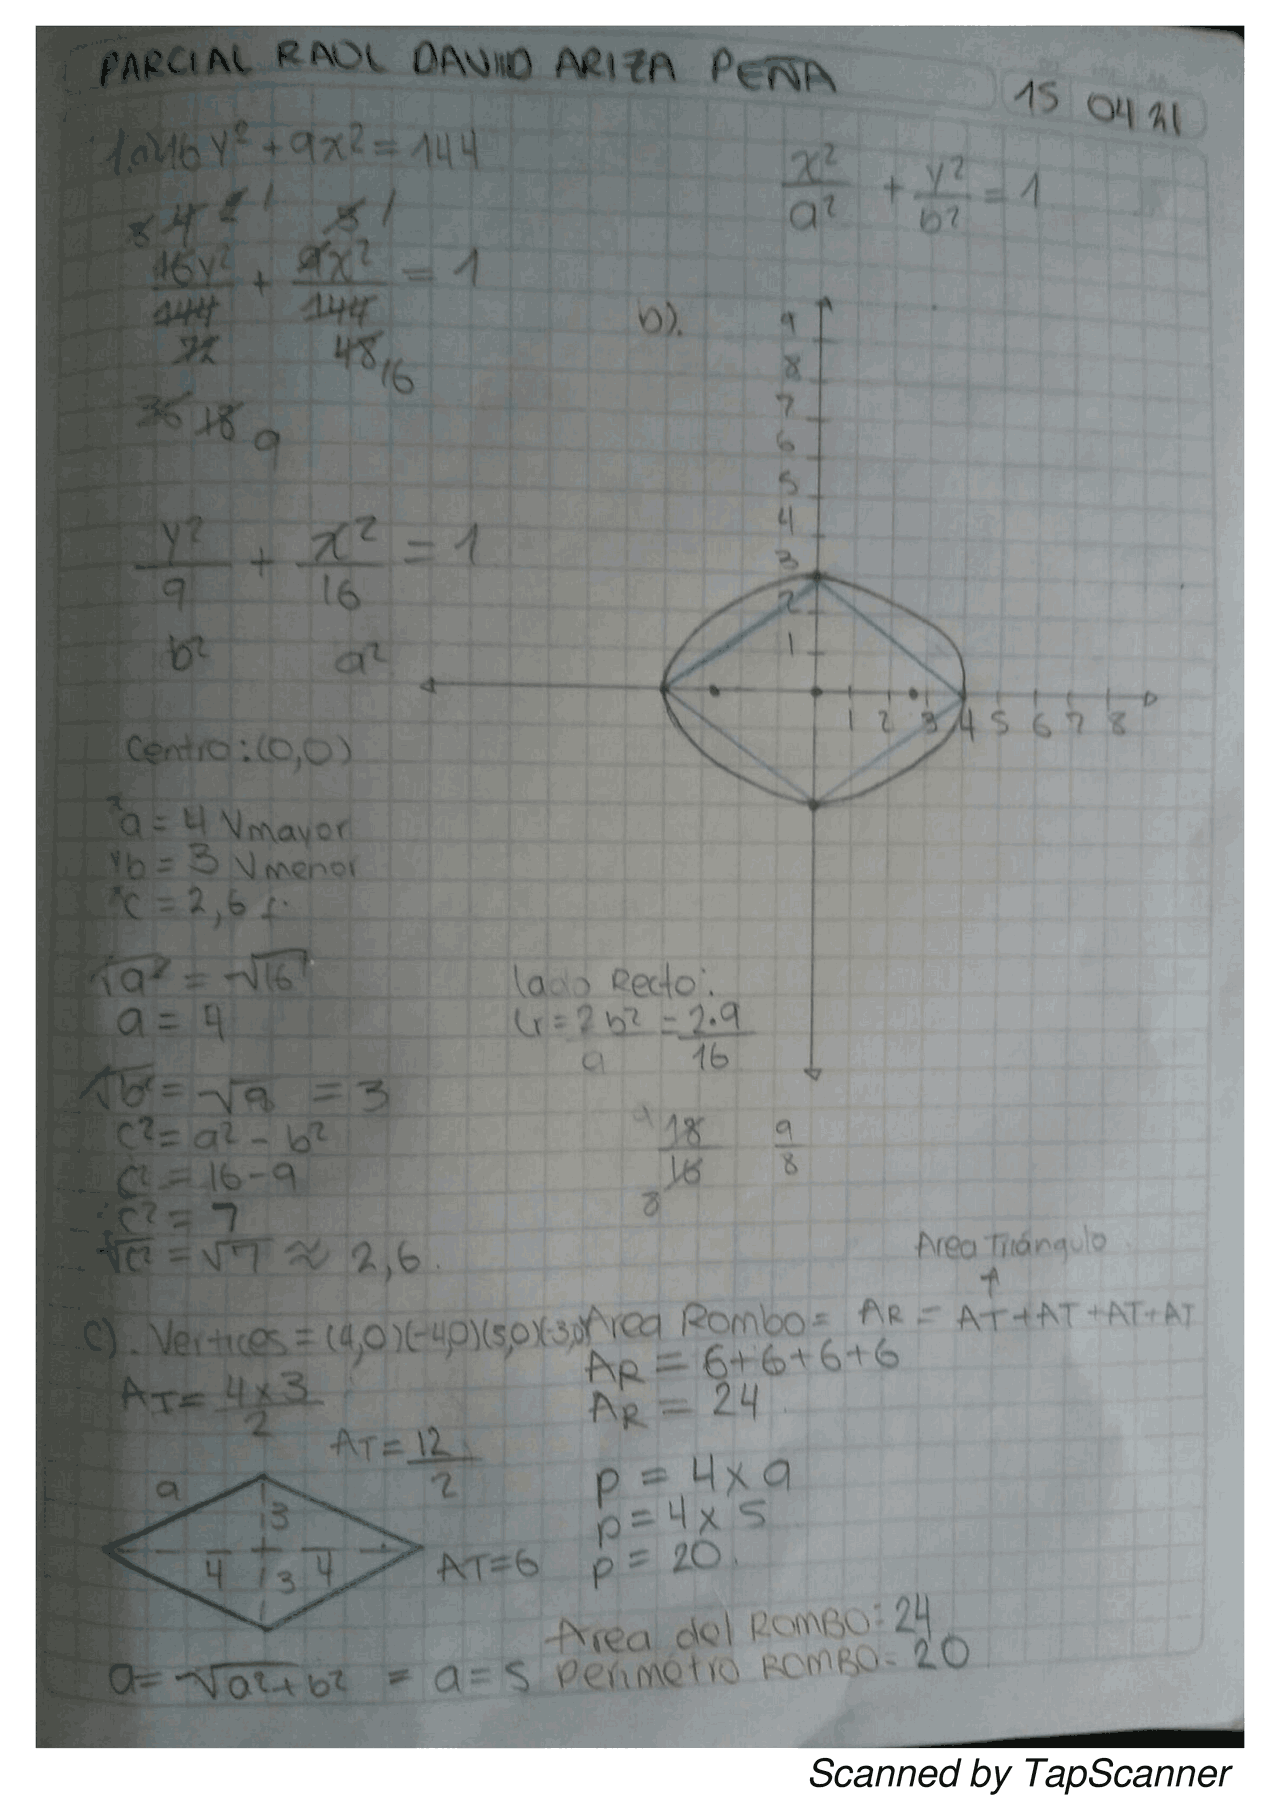 PARCIAL RAUL DAVID ARIZA PEÑA
15 04 21
1.a) 16y² + 9x² = 144
x²/a² + y²/b² = 1
16y²/144 + 9x²/144 = 1
72 48 16
36 18 9
b).
9
8
7
6
5
4
3
2
1
1 2 3 4 5 6 7 8
y²/9 + x²/16 = 1
b² a²
Centro: (0,0)
a = 4 Vmayor
b = 3 Vmenor
c = 2,6 f.
√a² = √16
a = 4
√b² = √9 = 3
c² = a² - b²
c² = 16 - 9
c² = 7
√c² = √7 ≈ 2,6.
lado Recto:
Lr = 2b²/a = 2·9/16
18/16 9/8
9
8
Area Triángulo
c). Vertices = (4,0)(-4,0)(3,0)(-3,0) Area Rombo = AR = AT + AT + AT + AT
AR = 6+6+6+6
AR = 24
AT = 4x3/2
AT = 12/2
AT = 6
a
3
4 3 4
P = 4 x a
P = 4 x 5
P = 20.
Area del ROMBO: 24
a = √a²+b² = a = 5 Perimetro ROMBO = 20
Scanned by TapScanner